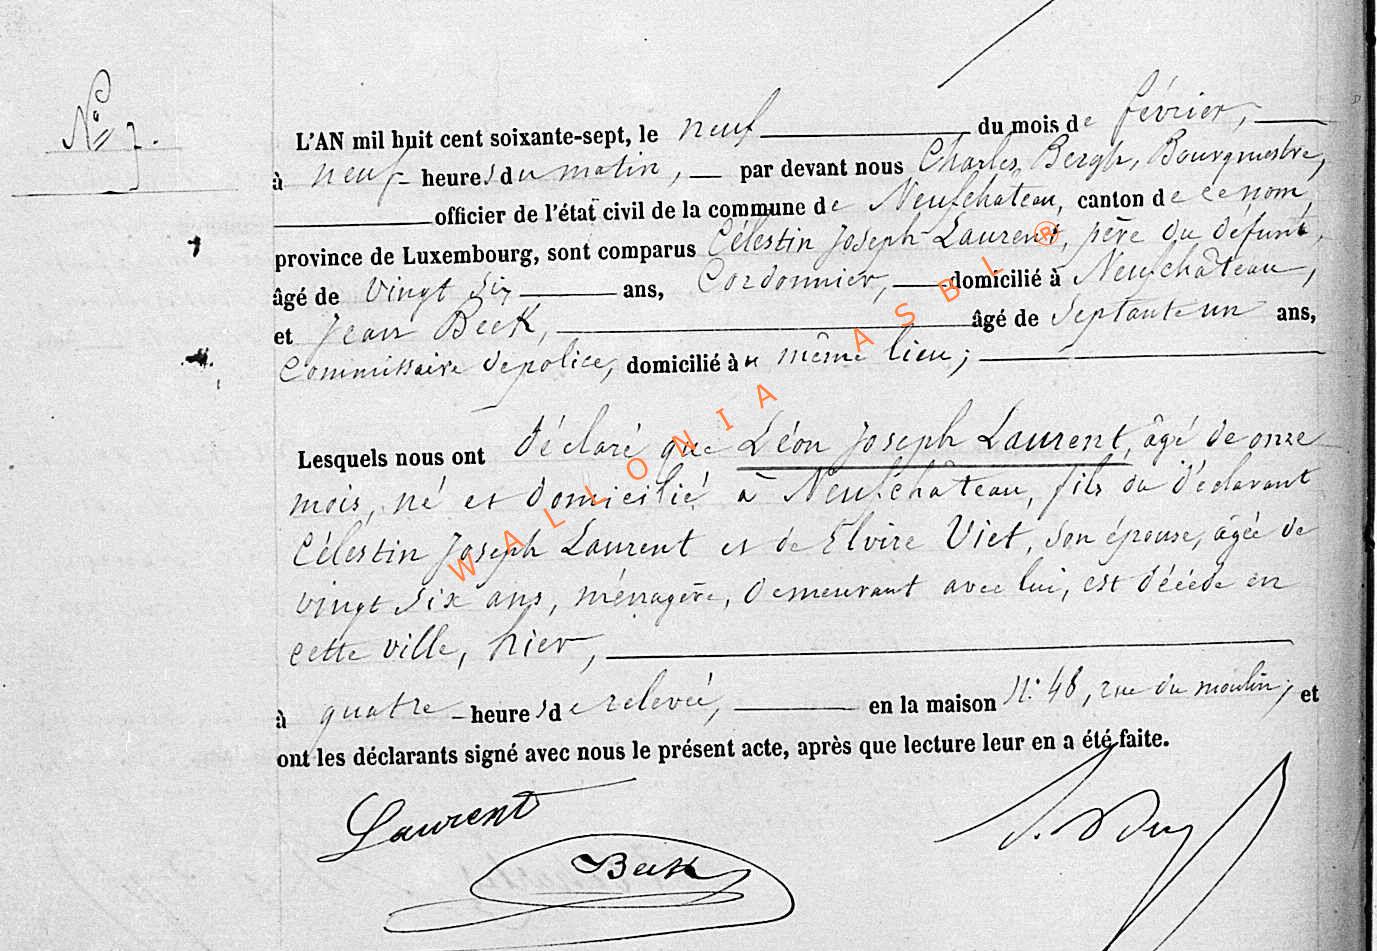 N° 7.
L'AN mil huit cent soixante-sept, le neuf du mois de février,
à neuf heures du matin, par devant nous Charles Bergh, Bourgmestre,
officier de l'état civil de la commune de Neufchateau, canton de ce nom,
province de Luxembourg, sont comparus Célestin Joseph Laurent, père du défunt,
âgé de vingt six ans, Cordonnier, domicilié à Neufchâteau,
et Jean Beck, âgé de Septante un ans,
Commissaire de police, domicilié au même lieu;
Lesquels nous ont déclaré que Léon Joseph Laurent, âgé de onze
mois, né et domicilié à Neufchâteau, fils du déclarant
Célestin Joseph Laurent et de Elvire Viet, son épouse, âgée de
vingt six ans, ménagère, demeurant avec lui, est décédé en
cette ville, hier,
à quatre heures de relevée, en la maison N° 48, rue du moulin; et
ont les déclarants signé avec nous le présent acte, après que lecture leur en a été faite.
Laurent
Beck
WALLONIA ASBL ®